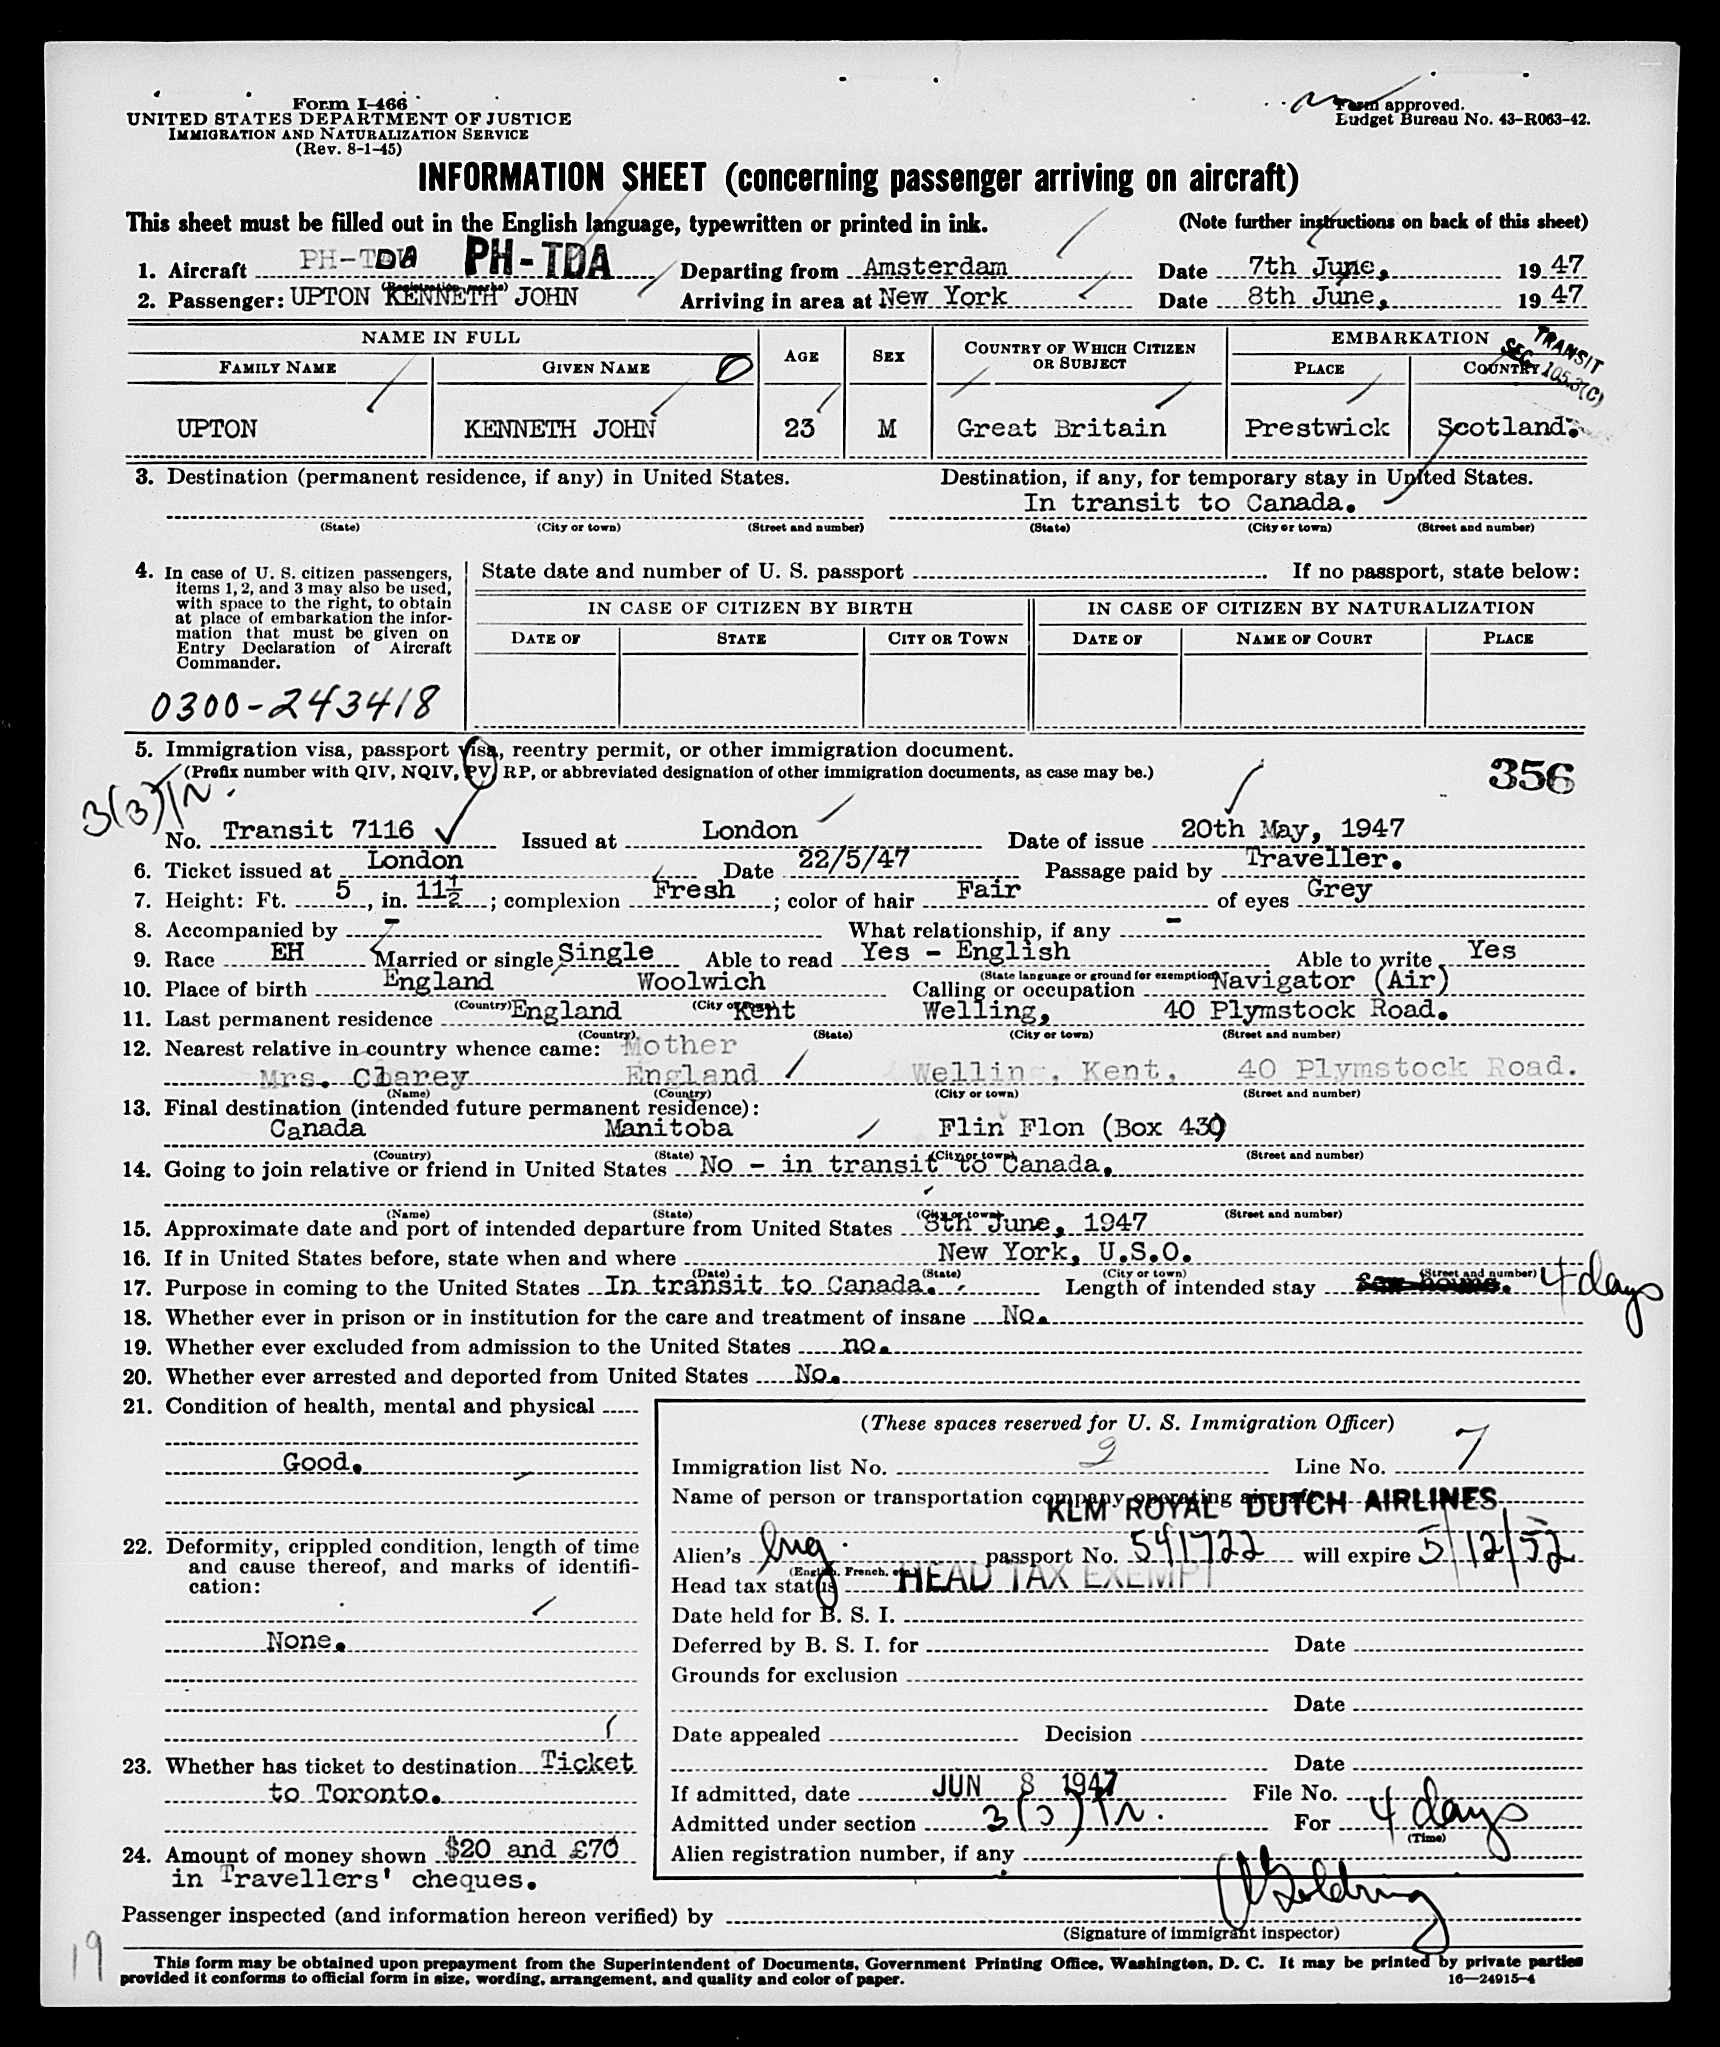 Form I-466
UNITED STATES DEPARTMENT OF JUSTICE
IMMIGRATION AND NATURALIZATION SERVICE
(Rev. 8-1-45)
Form approved.
Budget Bureau No. 43-R063-42.
INFORMATION SHEET (concerning passenger arriving on aircraft)
This sheet must be filled out in the English language, typewritten or printed in ink. (Note further instructions on back of this sheet)
1. Aircraft PH-TDA PH-TDA Departing from Amsterdam Date 7th June, 1947
(Registration marks)
2. Passenger: UPTON KENNETH JOHN Arriving in area at New York Date 8th June, 1947
NAME IN FULL AGE SEX COUNTRY OF WHICH CITIZEN OR SUBJECT EMBARKATION
FAMILY NAME GIVEN NAME PLACE COUNTRY
TRANSIT
SEC. 105.3(C)
UPTON KENNETH JOHN 23 M Great Britain Prestwick Scotland.
3. Destination (permanent residence, if any) in United States. Destination, if any, for temporary stay in United States.
In transit to Canada.
(State) (City or town) (Street and number) (State) (City or town) (Street and number)
4. In case of U. S. citizen passengers,
items 1, 2, and 3 may also be used,
with space to the right, to obtain
at place of embarkation the infor-
mation that must be given on
Entry Declaration of Aircraft
Commander.
State date and number of U. S. passport If no passport, state below:
IN CASE OF CITIZEN BY BIRTH IN CASE OF CITIZEN BY NATURALIZATION
DATE OF STATE CITY OR TOWN DATE OF NAME OF COURT PLACE
0300-243418
5. Immigration visa, passport visa, reentry permit, or other immigration document.
(Prefix number with QIV, NQIV, PV, RP, or abbreviated designation of other immigration documents, as case may be.)
356
3(3)
No. Transit 7116 Issued at London Date of issue 20th May, 1947
6. Ticket issued at London Date 22/5/47 Passage paid by Traveller.
7. Height: Ft. 5, in. 11½; complexion Fresh; color of hair Fair of eyes Grey
8. Accompanied by - What relationship, if any -
9. Race EH Married or single Single Able to read Yes - English Able to write Yes
(State language or ground for exemption)
10. Place of birth England Woolwich Calling or occupation Navigator (Air)
(Country) (City or town)
11. Last permanent residence England Kent Welling, 40 Plymstock Road.
(Country) (State) (City or town) (Street and number)
12. Nearest relative in country whence came: Mother
Mrs. Clarey England Welling, Kent, 40 Plymstock Road.
(Name) (Country) (City or town) (Street and number)
13. Final destination (intended future permanent residence):
Canada Manitoba Flin Flon (Box 430)
(Country) (State) (City or town) (Street and number)
14. Going to join relative or friend in United States No - in transit to Canada.
(Name) (State) (City or town) (Street and number)
15. Approximate date and port of intended departure from United States 8th June, 1947
16. If in United States before, state when and where New York, U.S.O.
(Date) (State) (City or town) (Street and number)
17. Purpose in coming to the United States In transit to Canada. Length of intended stay 4 days
18. Whether ever in prison or in institution for the care and treatment of insane No.
19. Whether ever excluded from admission to the United States no.
20. Whether ever arrested and deported from United States No.
21. Condition of health, mental and physical
Good.
22. Deformity, crippled condition, length of time
and cause thereof, and marks of identifi-
cation:
None.
23. Whether has ticket to destination Ticket
to Toronto.
24. Amount of money shown $20 and £70
in Travellers' cheques.
(These spaces reserved for U. S. Immigration Officer)
Immigration list No. 2 Line No. 7
Name of person or transportation company operating aircraft
KLM ROYAL DUTCH AIRLINES
Alien's Eng. passport No. 541722 will expire 5/12/52
(English, French, etc.)
Head tax status HEAD TAX EXEMPT
Date held for B. S. I.
Deferred by B. S. I. for Date
Grounds for exclusion
Date
Date appealed Decision
Date
If admitted, date JUN 8 1947 File No.
Admitted under section 3(3) For 4 days
(Time)
Alien registration number, if any
Passenger inspected (and information hereon verified) by
(Signature of immigrant inspector)
19
This form may be obtained upon prepayment from the Superintendent of Documents, Government Printing Office, Washington, D. C. It may be printed by private parties
provided it conforms to official form in size, wording, arrangement, and quality and color of paper. 16—24915-4